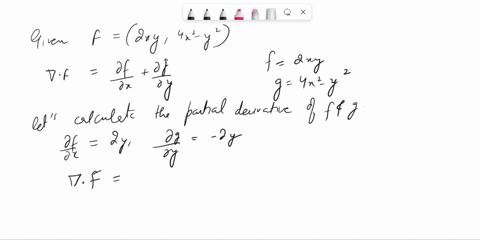 Given F = (2xy, 4x²-y²)
∇.F = ∂f/∂x + ∂g/∂y
f = 2xy
g = 4x²-y²
let's calculate the partial derivative of f & g
∂f/∂x = 2y, ∂g/∂y = -2y
∇.F =